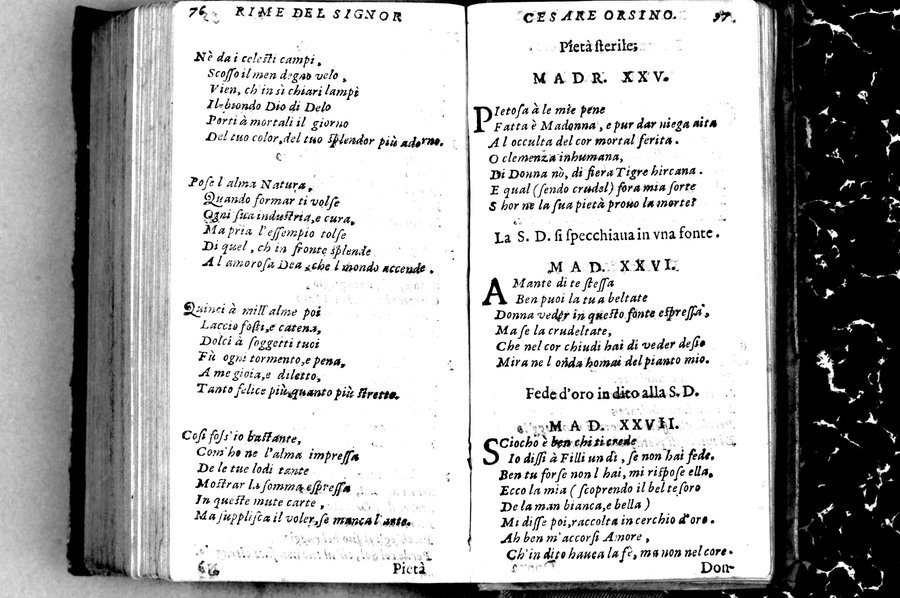 76
RIME DEL SIGNOR
Nè da i celesti campi,
Scosso il men degno velo,
Vien, ch'in sì chiari lampi
Il biondo Dio di Delo
Porti à mortali il giorno
Del tuo color, del tuo splendor più adorno.
Pose l alma Natura,
Quando formar ti volse
Ogni sua industria, e cura,
Ma pria l'essempio tolse
Di quel, ch in fronte splende
A l amorosa Dea, che l mondo accende.
Quinci à mill'alme poi
Laccio fosti, e catena,
Dolci à soggetti tuoi
Fù ogni tormento, e pena,
A me gioia, e diletto,
Tanto felice più, quanto più stretto.
Cosi foss'io bastante,
Com'ho ne l'alma impressa
De le tue lodi tante
Mostrar la somma espressa
In queste mute carte,
Ma supplisca il voler, se manca l'arte.
Pietà
CESARE ORSINO.
Pietà sterile;
MADR. XXV.
Pietosa à le mie pene
Fatta è Madonna, e pur dar niega aita
A l occulta del cor mortal ferita.
O clemenza inhumana,
Di Donna nò, di fiera Tigre hircana.
E qual (sendo crudel) fora mia sorte
S hor ne la sua pietà prouo la morte?
La S. D. si specchiaua in vna fonte.
MAD. XXVI.
Amante di te stessa
Ben puoi la tua beltate
Donna veder in questo fonte espressa,
Ma se la crudeltate,
Che nel cor chiudi hai di veder desio
Mira ne l onda homai del pianto mio.
Fede d'oro in dito alla S. D.
MAD. XXVII.
Sciocho è ben chi ti crede
Io dissi à Filli un dì, se non hai fede.
Ben tu forse non l hai, mi rispose ella,
Ecco la mia (scoprendo il bel tesoro
De la man bianca, e bella)
Mi disse poi, raccolta in cerchio d'oro.
Ah ben m'accorsi Amore,
Ch'in dito hauea la fè, ma non nel core.
Don-